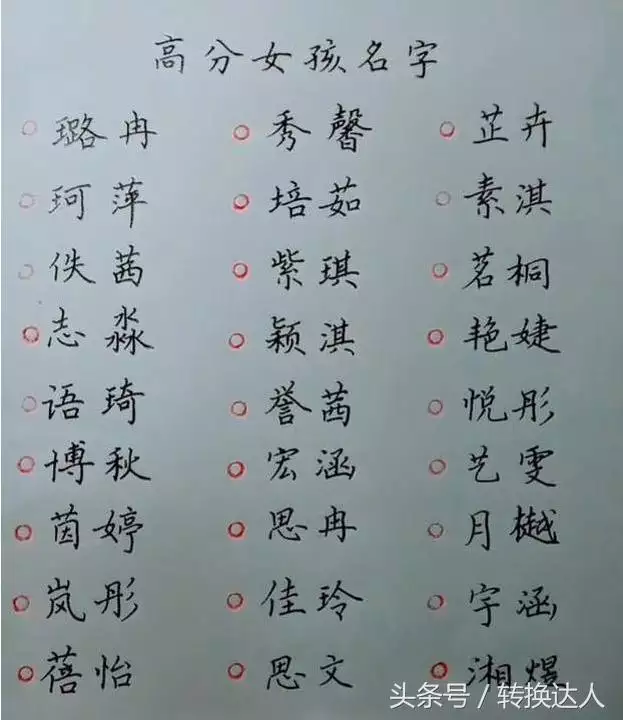 高分女孩名字
璐冉 秀馨 芷卉
珂萍 培茹 素淇
佚茜 紫琪 茗桐
志淼 颖淇 艳婕
语琦 誉茜 悦彤
博秋 宏涵 艺雯
茵婷 思冉 月樾
岚彤 佳玲 宇涵
蓓怡 思文 湘煜
头条号/转换达人